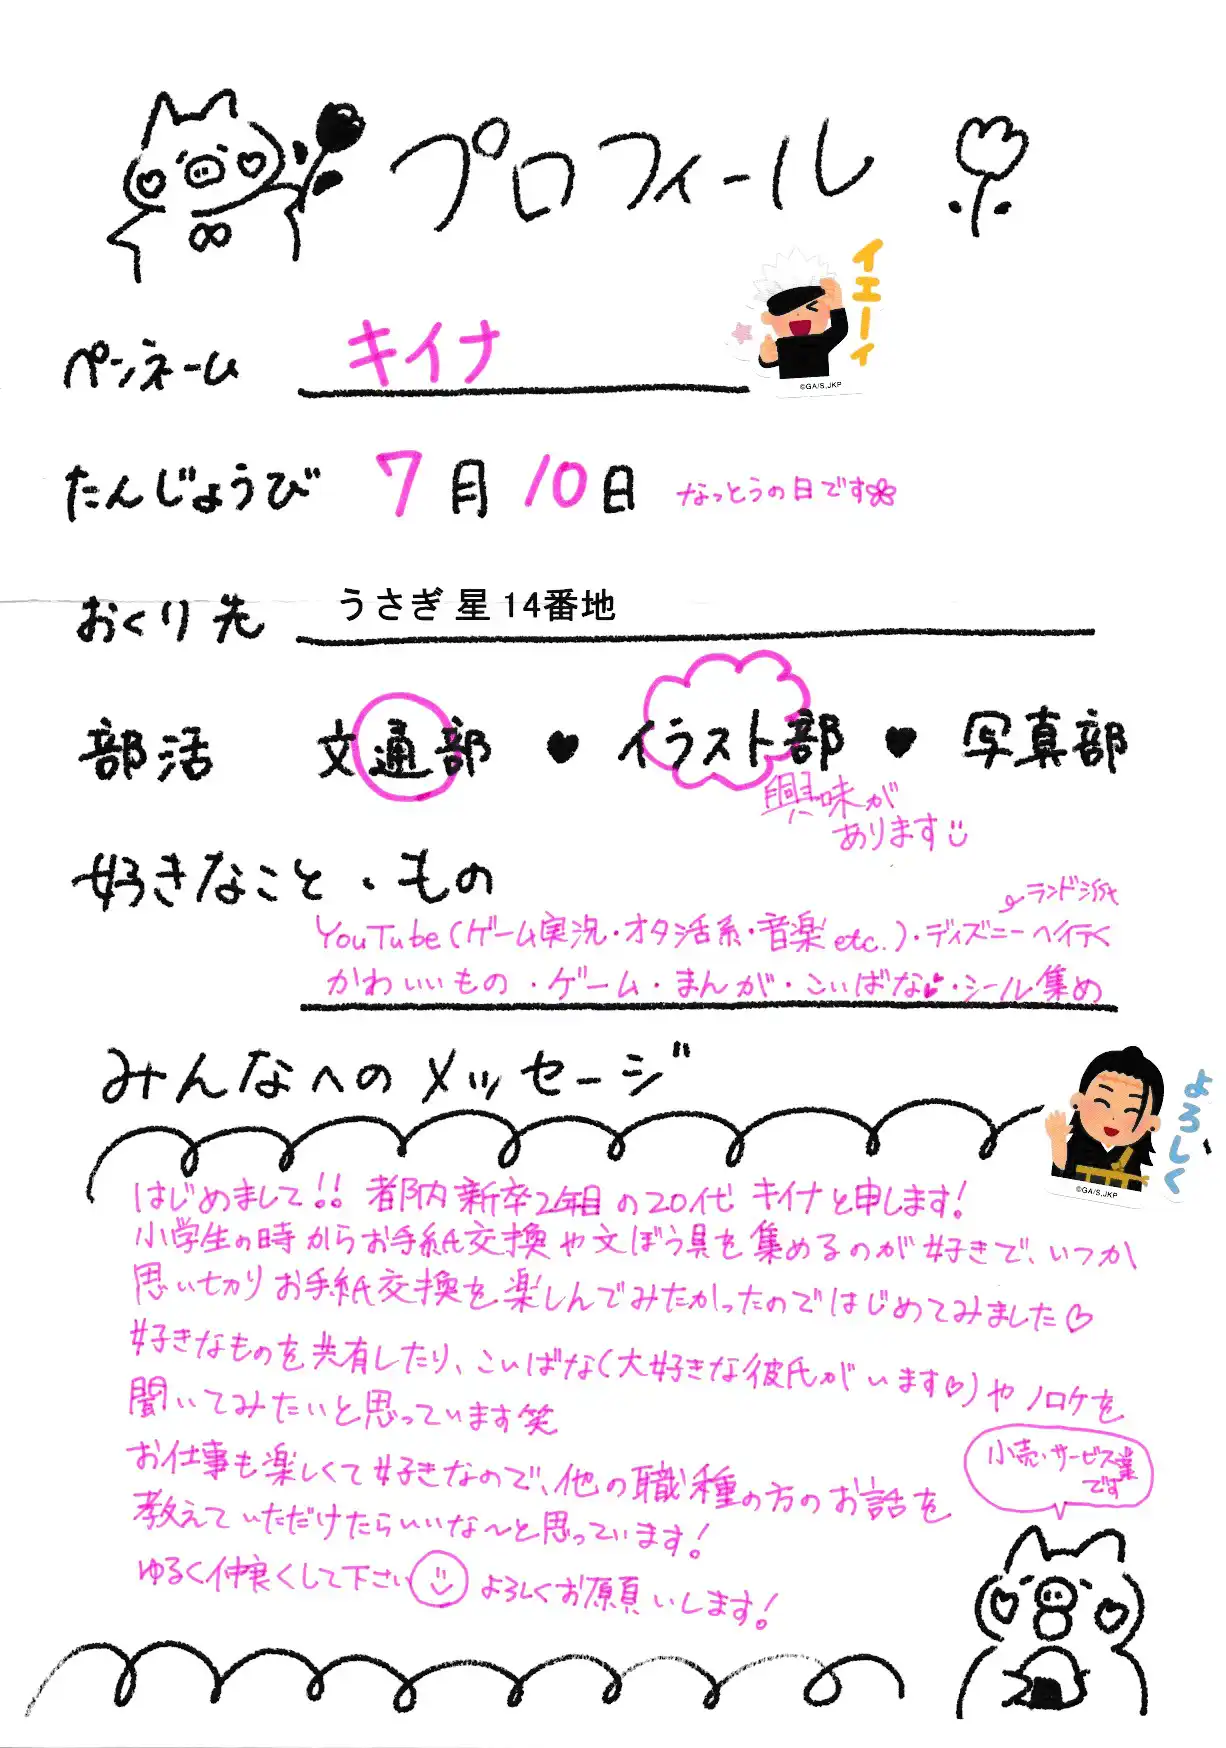 プロフィール
イエーイ
©GA/S,JKP
ペンネーム キイナ
たんじょうび 7月10日 なっとうの日です
おくり先 うさぎ星14番地
部活 文通部 ♥ イラスト部 ♥ 写真部
興味が
あります
好きなこと・もの
ランド派
YouTube(ゲーム実況・オタ活系・音楽etc.)・ディズニーへ行く
かわいいもの・ゲーム・まんが・こいばな・シール集め
みんなへのメッセージ
よろしく
©GA/S,JKP
はじめまして!! 都内新卒2年目の20代 キイナと申します!
小学生の時からお手紙交換や文ぼう具を集めるのが好きで、いつか
思い切りお手紙交換を楽しんでみたかったのではじめてみました♡
好きなものを共有したり、こいばな(大好きな彼氏がいます♡)やノロケを
聞いてみたいと思っています笑
お仕事も楽しくて好きなので、他の職種の方のお話を
教えていただけたらいいな〜と思っています!
ゆるく仲良くして下さい よろしくお願いします!
小売・サービス業
です